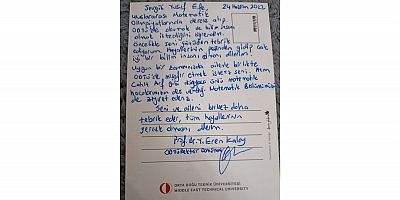 Sevgili Yusuf Efe, 24 Haziran 2022
Uluslararası Matematik
Olimpiyatlarında derece alıp
ODTÜ'de okumak ve bilim insanı
olmak istediğini öğrendim.
Öncelikle seni yürekten tebrik
ediyorum. Hayallerinin peşinden gidip çok
iyi bir bilim insanı olmanı dilerim!
Uygun bir zamanınızda ailenle birlikte
ODTÜ'de misafir etmek isteriz seni.
Cahit Arf gibi dünyaca ünlü matematik
hocalarımızın ders verdiği Matematik Bölümümüzü
de ziyaret ederiz.
Seni ve aileni birkez daha
tebrik eder, tüm hayallerinin
gerçek olmasını dilerim.
Prof. Dr. Y. Eren Kalay
ODTÜ Rektör Danışmanı
ORTA DOĞU TEKNİK ÜNİVERSİTESİ
MIDDLE EAST TECHNICAL UNIVERSITY